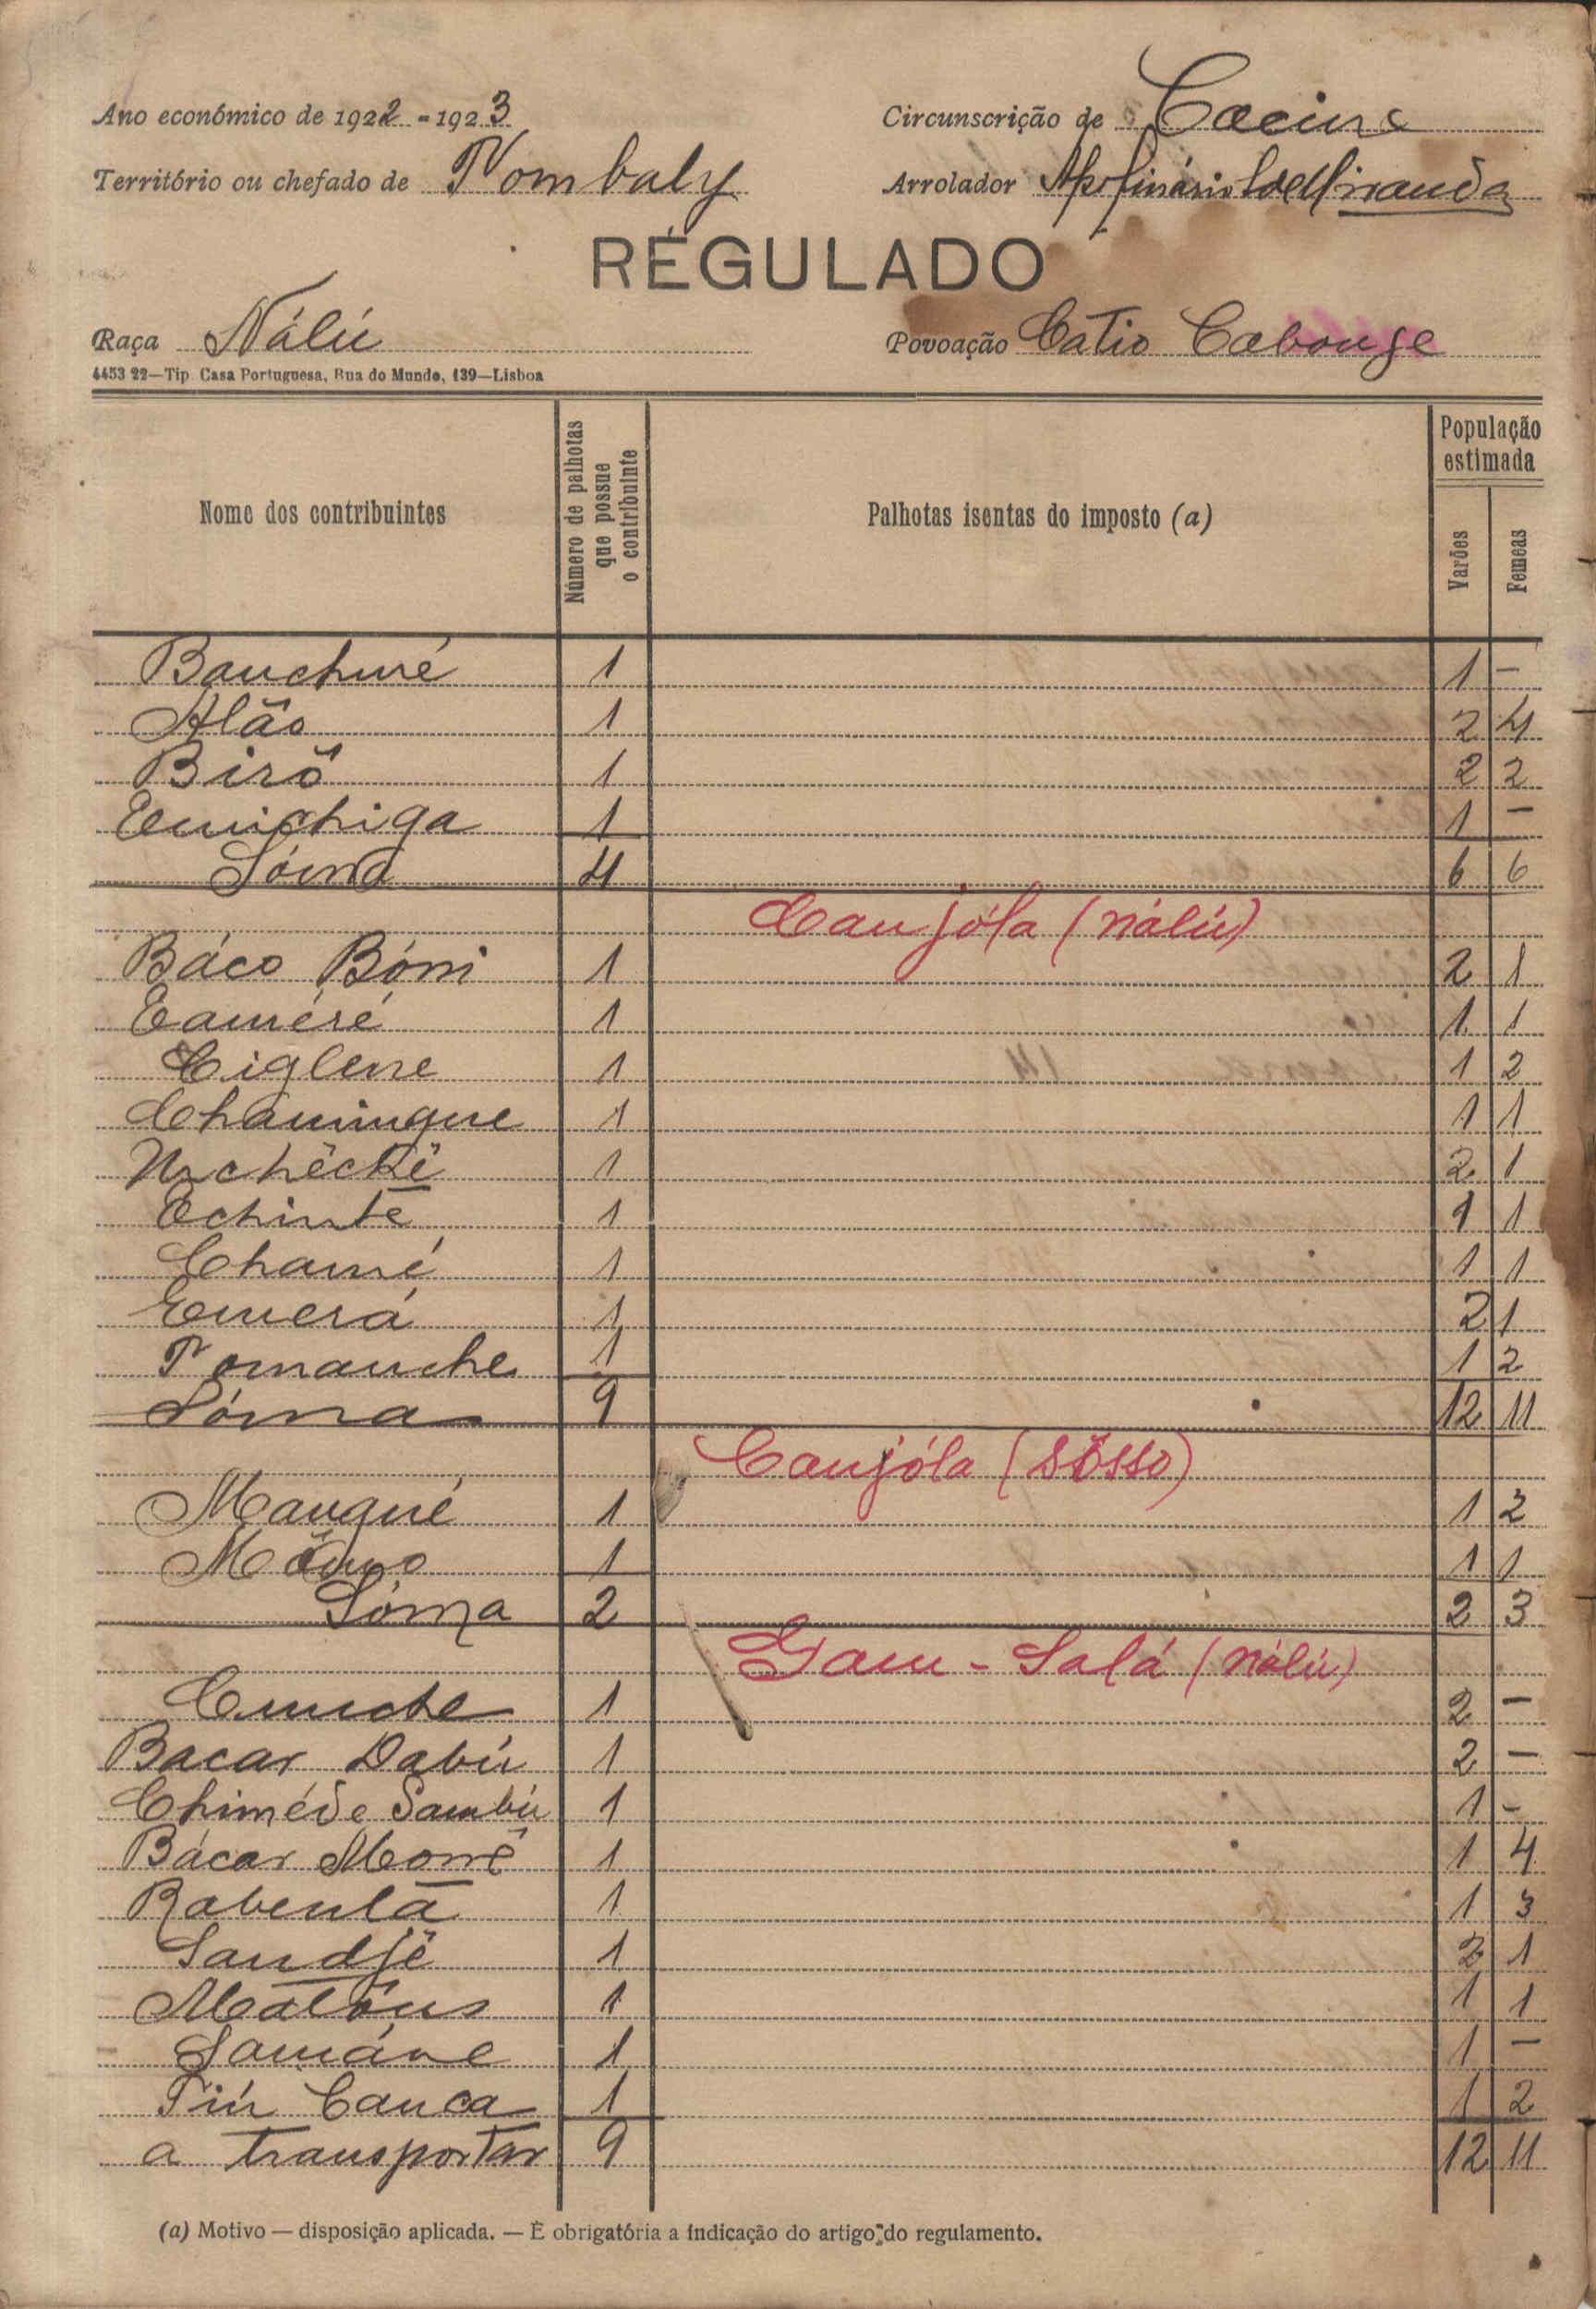 Ano económico de 1922 - 1923
Circunscrição de Cacine
Território ou chefado de Tombaly
Arrolador Apolinário de Miranda
RÉGULADO
Raça Nálú
Povoação Catio Cabouge
4453 22—Tip. Casa Portuguesa, Rua do Mundo, 139—Lisboa
Nome dos contribuintes
Número de palhotas que possue o contribuinte
Palhotas isentas do imposto (a)
População estimada
Varões
Femeas
Bauchuré 1 1 –
Alão 1 2 4
Birô 1 2 2
1 1 –
Sóma 4 6 6
Caujóla (nálú)
Báco Bóni 1 2 1
Caméré 1 1 1
Ciglene 1 1 2
Chamingue 1 1 1
Nchêckê 1 2 1
Echinte 1 1 1
Chamé 1 1 1
Emerá 1 2 1
Tomanche 1 1 2
Sóma 9 12 11
Caujóla (Sôsso)
Mangué 1 1 2
1 1 1
Sóma 2 2 3
Gam-Salá (nálú)
Cumche 1 2 –
Bacar Dabú 1 2 –
Chiméde Sambú 1 1 –
Bácar Momê 1 1 4
Rabenlá 1 1 3
Sandjê 1 2 1
1 1 1
Samáne 1 1 –
Tiú Cauca 1 1 2
a transportar 9 12 11
(a) Motivo — disposição aplicada. — É obrigatória a indicação do artigo do regulamento.